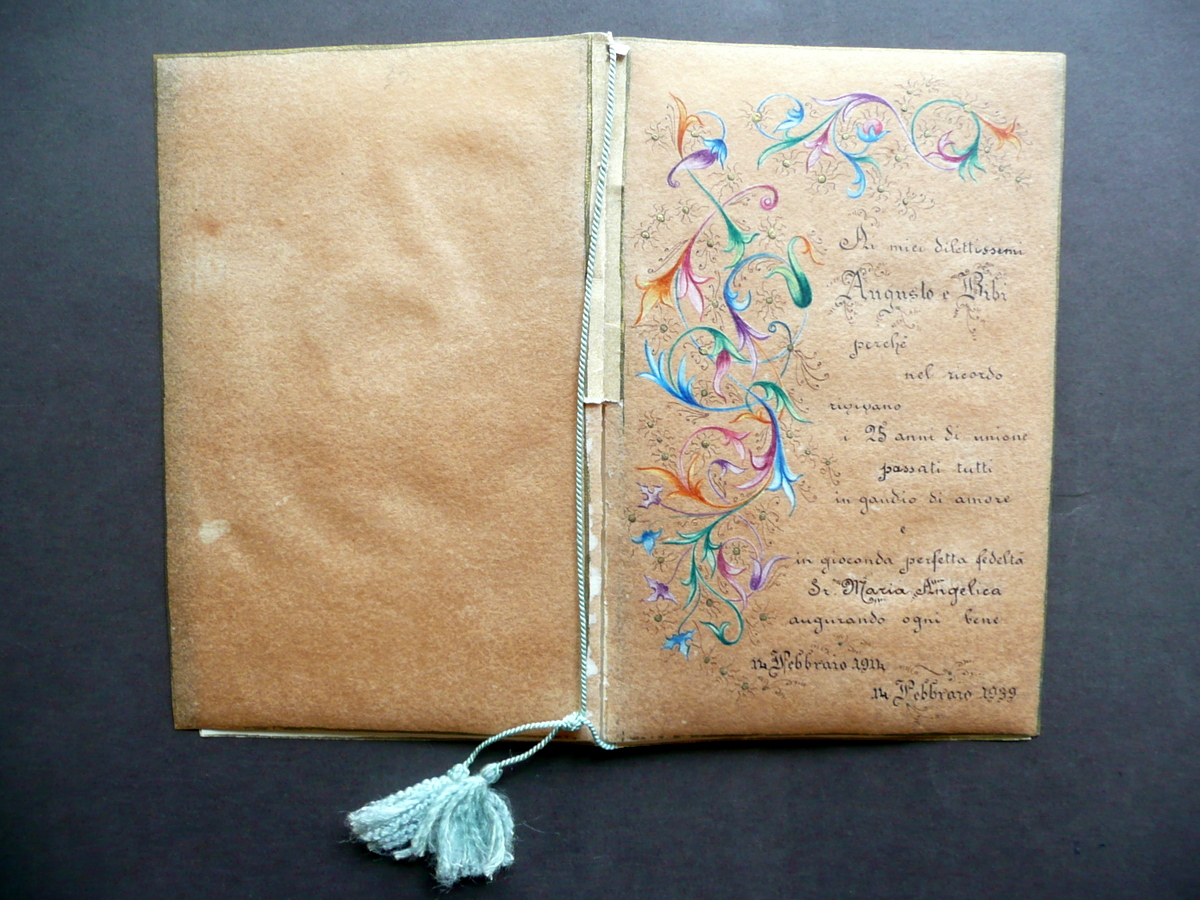 Ai miei dilettissimi
Augusto e Bibi
perchè
nel ricordo
rivivano
i 25 anni di unione
passati tutti
in gaudio di amore
e
in gioconda perfetta fedeltà
Sr. Maria Angelica
augurando ogni bene
14 Febbraio 1914
14 Febbraio 1939